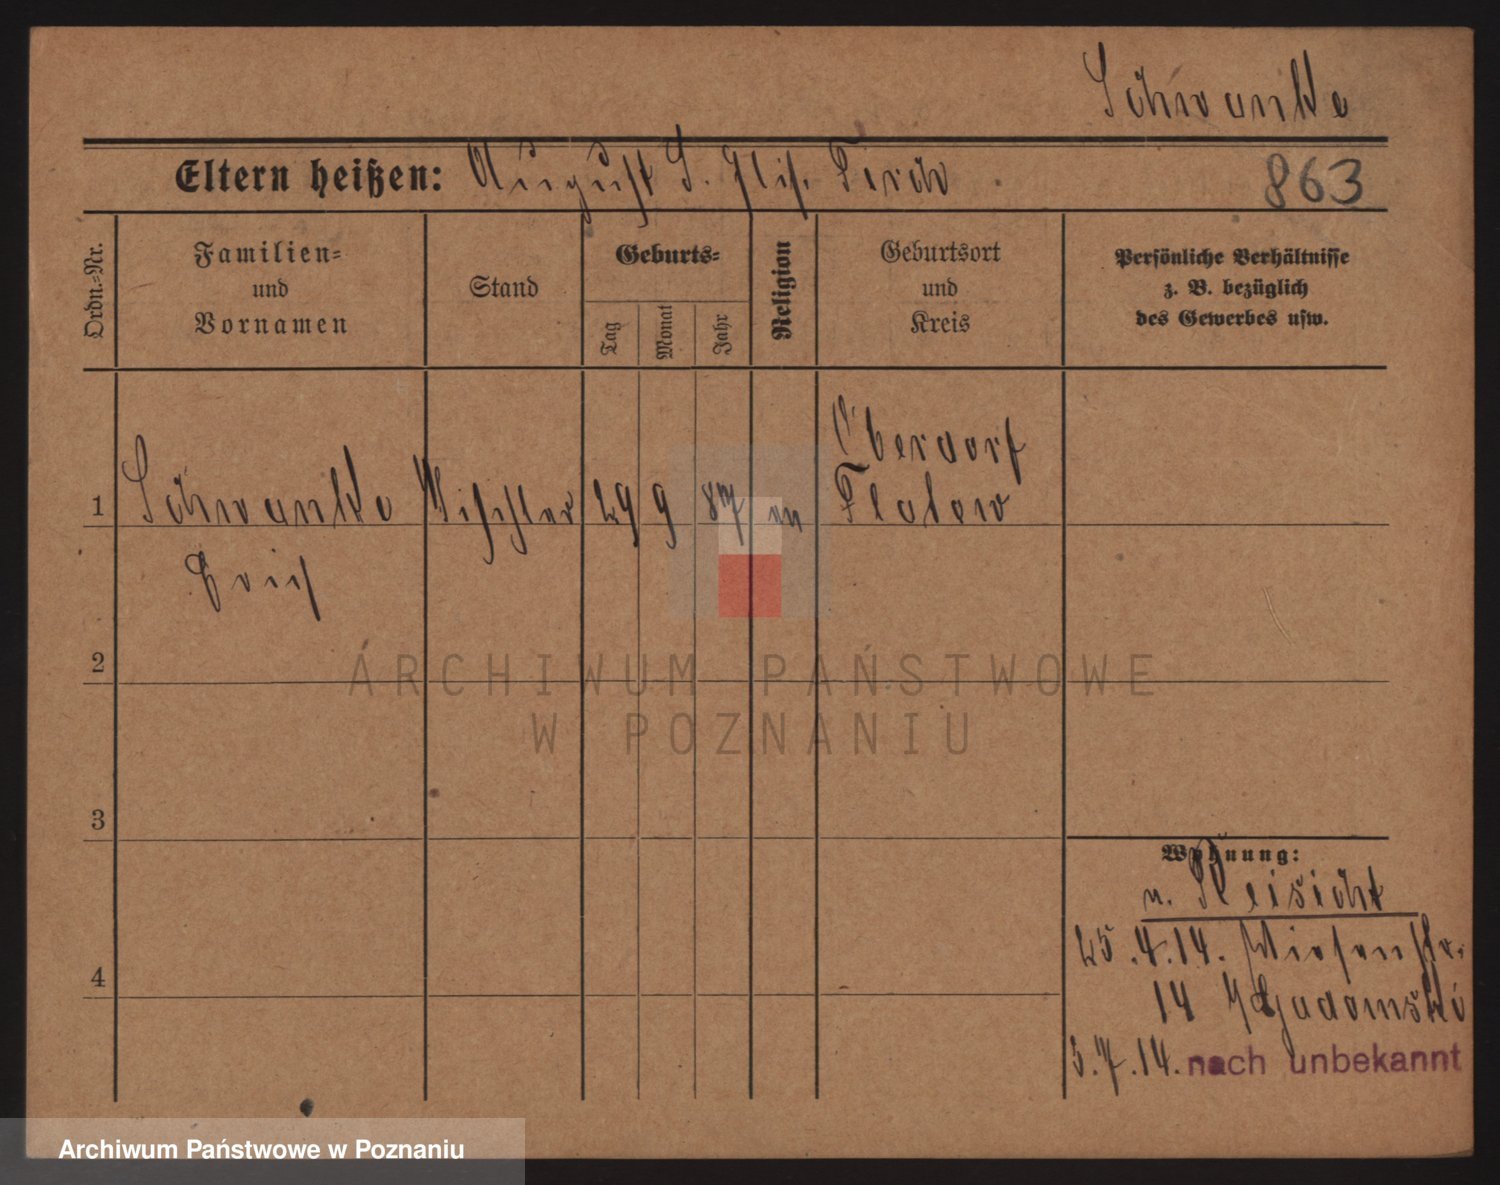 Schwanke
Eltern heißen: August S. Elis. Tirch
863
Ordn.=Nr.
Familien=
und
Vornamen
Stand
Geburts=
Tag
Monat
Jahr
Religion
Geburtsort
und
Kreis
Persönliche Verhältnisse
z. B. bezüglich
des Gewerbes usw.
Oberdorf
1 Schwanke Tischler 29 9 87 ev Flatow
Erich
2
3
4
Wohnung:
v.
25.4.14. Wiesenstr.
14
5.7.14. nach unbekannt
ARCHIWUM PAŃSTWOWE
W POZNANIU
Archiwum Państwowe w Poznaniu